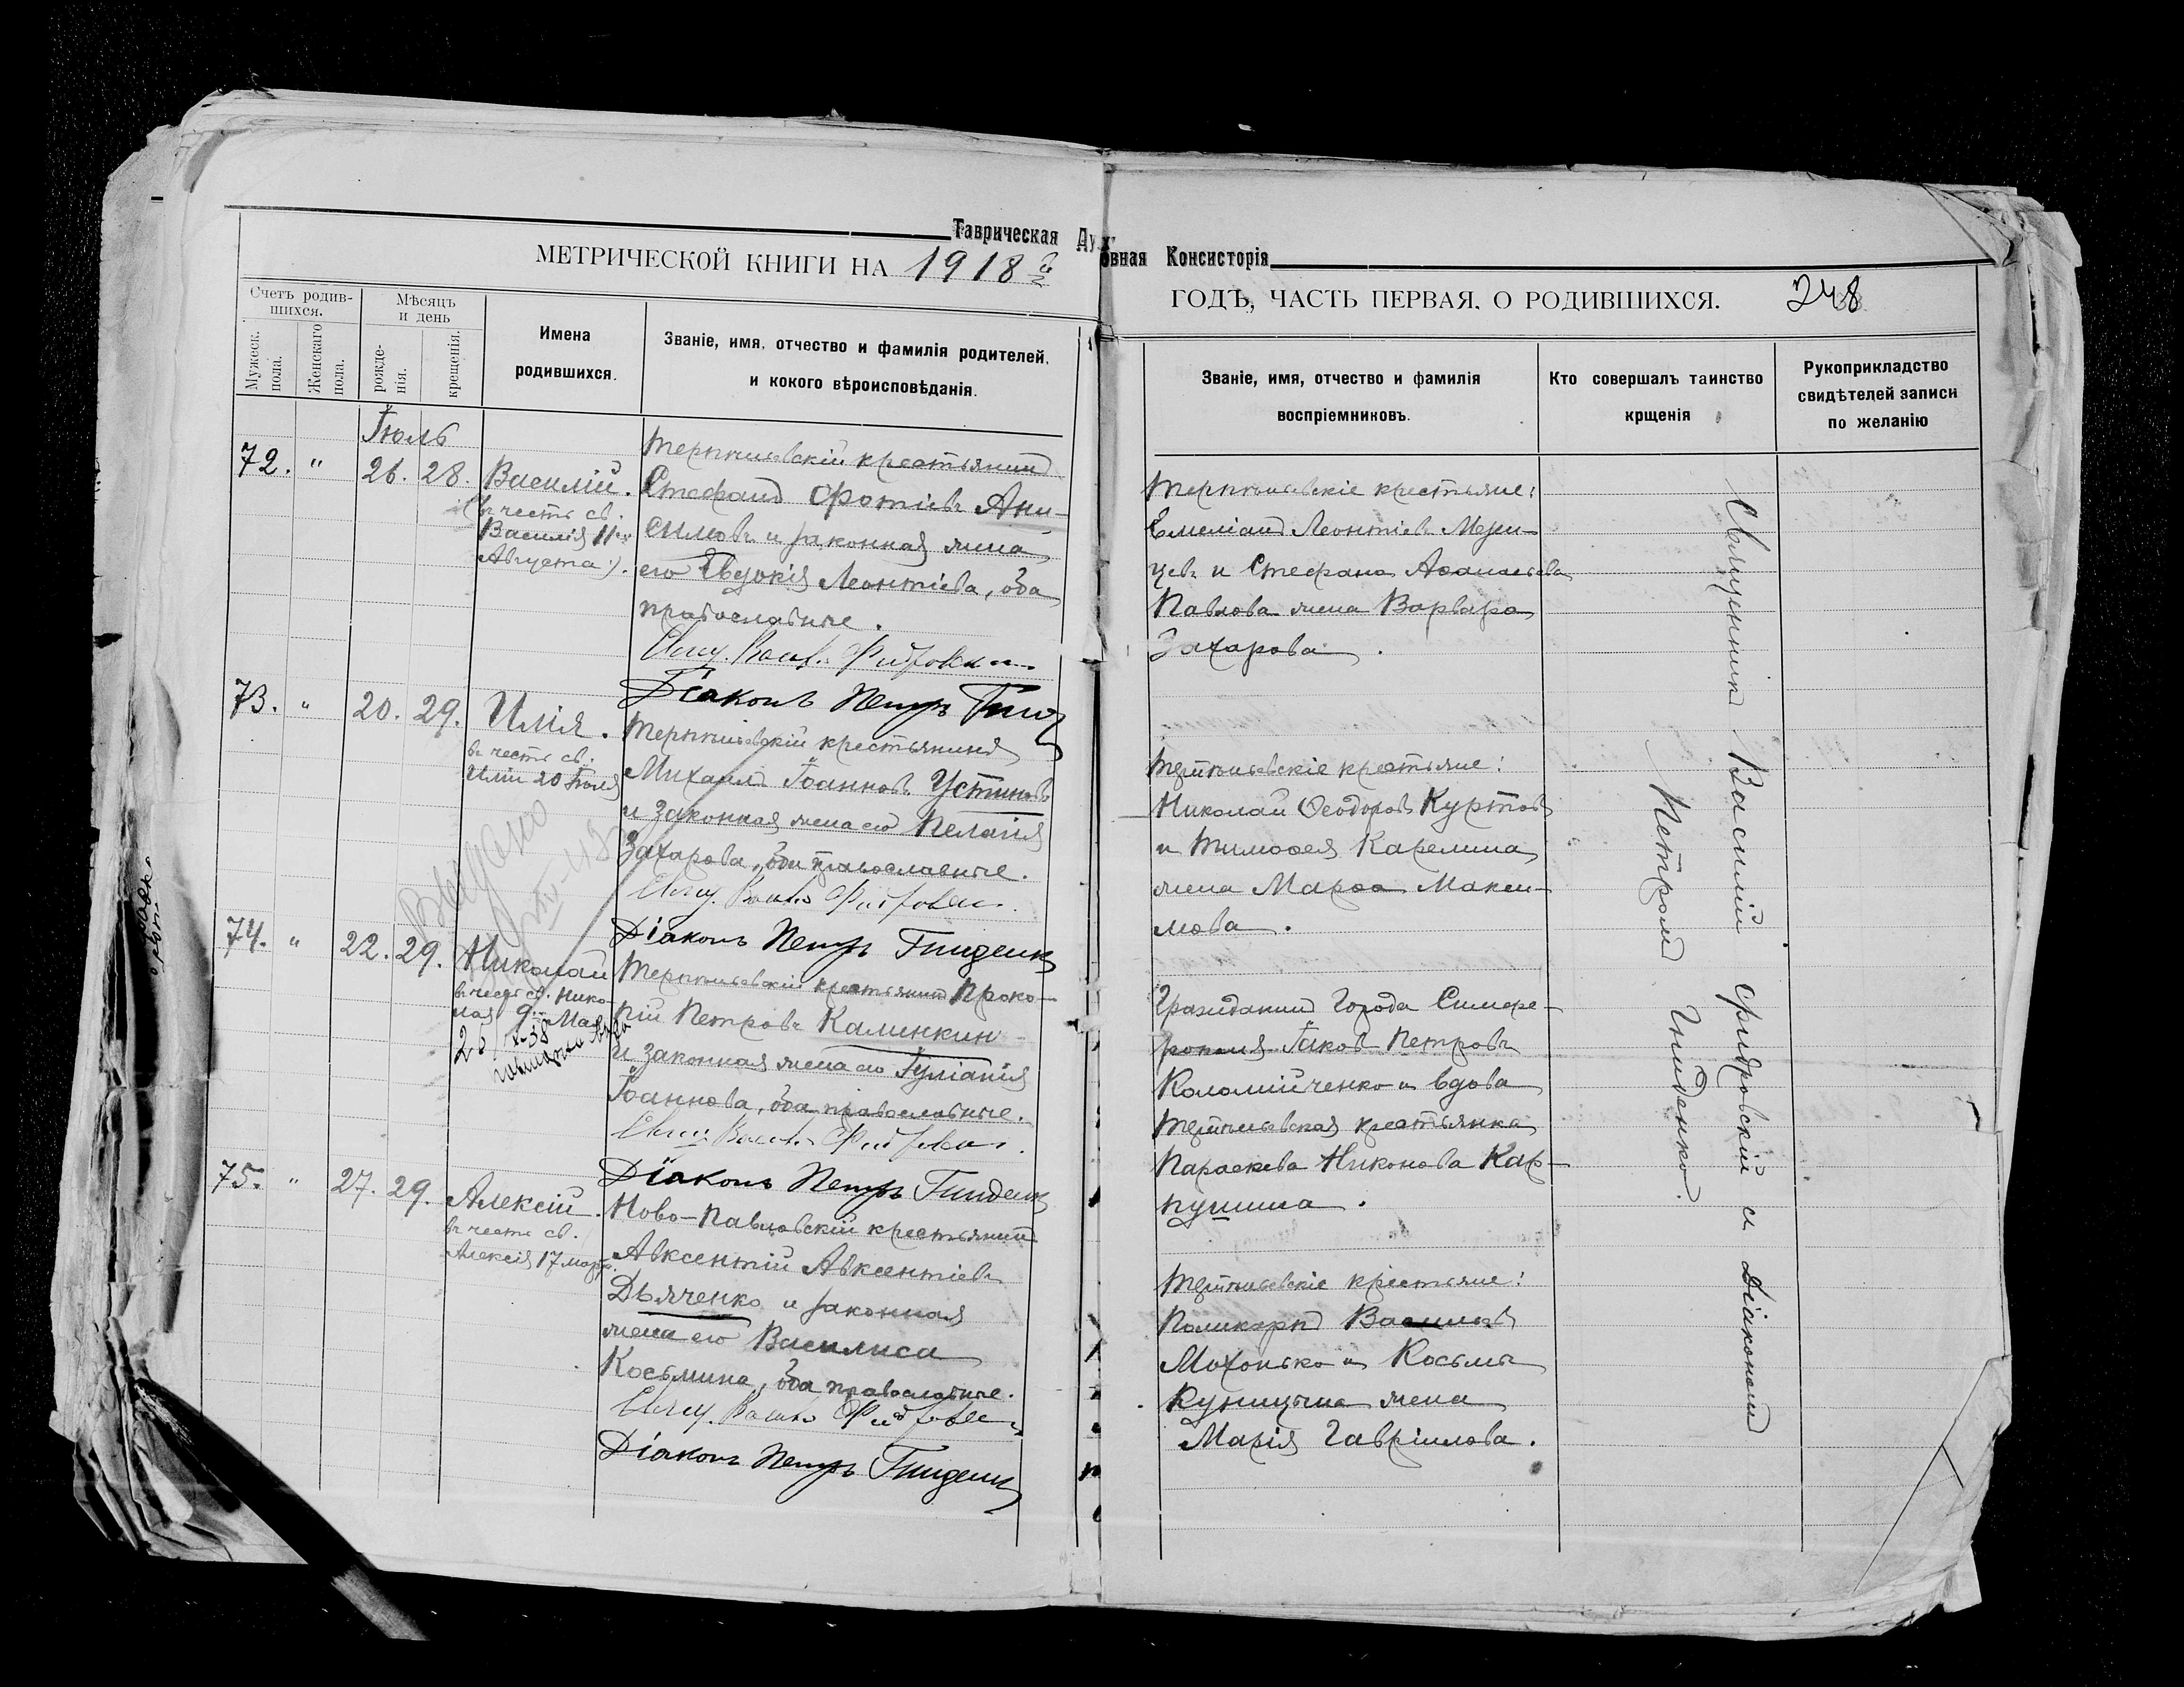 Таврическая Духовная Консисторія
МЕТРИЧЕСКОЙ КНИГИ НА 1918й
ГОДЪ, ЧАСТЬ ПЕРВАЯ. О РОДИВШИХСЯ. 248
Счетъ родив-
шихся.
Мужеск.
пола.
Женскаго
пола.
Мѣсяцъ
и день
рожде-
нія.
крещенія.
Имена
родившихся.
Званіе, имя, отчество и фамилія родителей,
и кокого вѣроисповѣданія.
Званіе, имя, отчество и фамилія
воспріемниковъ.
Кто совершалъ таинство
крщенія
Рукоприкладство
свидѣтелей записи
по желанію
Іюль
72. " 26. 28. Василій.
въ честь св.
Василія 11го
Августа).
крестьянинъ
Стефанъ Фотіевъ Ани-
симовъ и законная жена
его Евдокія Леонтіева, оба
православные.
Свящ. Васил. Фидровскій
Діаконъ Петръ
крестьяне:
Емеліанъ Леонтіевъ Мези-
цевъ и Стефана Аѳанасьева
Павлова жена Варвара
Захарова.
73. " 20. 29. Илія.
въ честь св.
Иліи 20 Іюля
крестьянинъ
Михаилъ Іоанновъ Устиновъ
и законная жена его Пелагія
Захарова, оба православные.
Свящ. Васил. Фидровскій
Діаконъ Петръ Гниденко
Выдано
крестьяне:
Николай Ѳеодоровъ Куртовъ
и Тимоѳея Карелина
жена Марѳа Макси-
мова.
74. " 22. 29. Николай
въ честь св. Нико-
лая 9го Мая
крестьянинъ Проко-
пій Петровъ Калинкин
и законная жена его Іуліанія
Іоаннова, оба православные.
Свящ. Васил. Фидровскій
Діаконъ Петръ Гниденко
Гражданинъ Города Симфе-
рополя Іаковъ Петровъ
Коломійченко и вдова
крестьянка
Параскева Никонова Кар-
пушина.
75. " 27. 29. Алексій.
въ честь св.
Алексія 17 марта.
Ново-Павловскій крестьянинъ
Авксентій Авксентіевъ
Дьяченко и законная
жена его Василиса
Косьмина, оба православные.
Свящ. Васил. Фидровскій
Діаконъ Петръ Гниденко
крестьяне:
Поликарпъ Васильевъ
Мохонько и Косьмы
Куницына жена
Марія Гавріилова.
Священникъ Василій Фидровскій и Діакономъ
Петромъ Гниденко.